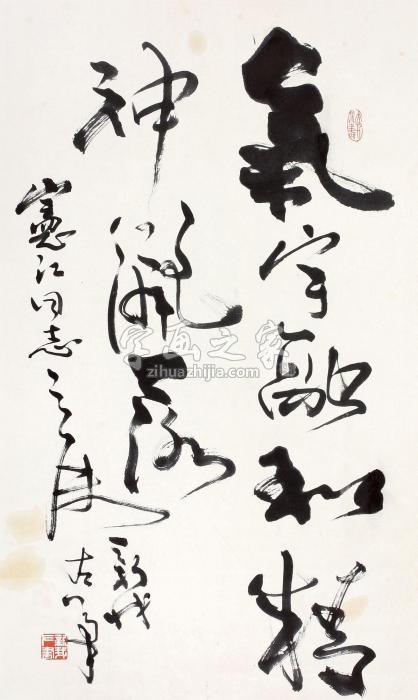 氣宇融和精
神灑落
憲江同志之
新我
左筆
字画之家
zihuazhijia.com